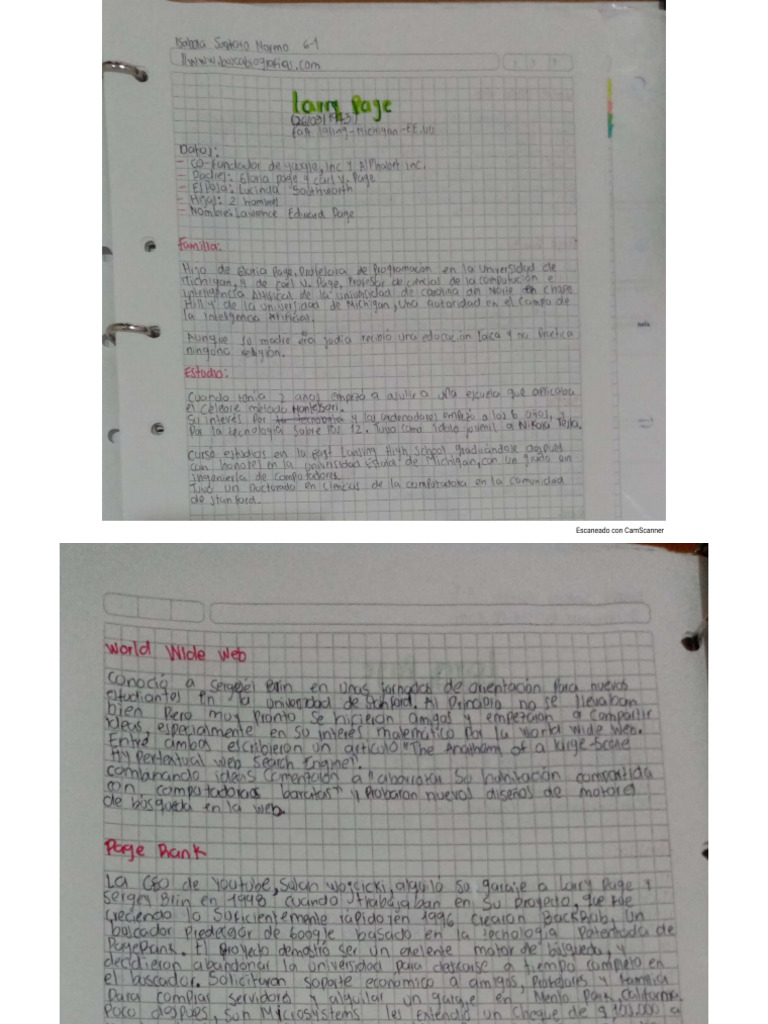 Isabela Santoyo Moreno 6-1
//www.buscabiografias.com
Larry Page
(26/03/1973)
East Lansing-Michigan-EE.UU
Datos:
- Co-fundador de Google, inc y Alphabet inc.
- Padres: Gloria page y Carl V. Page
- Esposa: Lucinda Southworth
- Hijos: 2 hombres
- Nombres Lawrence Eduard Page
Familia:
Hijo de Gloria Page, Profesora de Programación en la Universidad de
Michigan, y de Carl V. Page, Profesor de ciencias de la computación e
inteligencia Artificial de la universidad de carolina del Norte en Chape
Hill y de la universidad de Michigan, una autoridad en el campo de
la inteligencia Artificial.
Aunque su madre era judía recibió una educación laica y no practica
ninguna religión.
Estudio:
Cuando tenía 2 años empezó a asistir a una escuela que aplicaba
el célebre método Montessori.
Su interes por la tecnología y los ordenadores empezó a los 6 años, y
Por la tecnología sobre los 12. Tuvo como ídolo juvenil a Nikola Tesla.
Curso estudios en la East Lansing High School graduándose después
con honores en la universidad Estatal de Michigan, con un grado en
ingeniería de computadores.
Tuvo un Doctorado en ciencias de la computadora en la comunidad
de stanford.
Escaneado con CamScanner
World Wide Web
Conoció a Serguéi Brin en unas jornadas de orientación para nuevos
estudiantes en la universidad de Stanford. Al Principio no se llevaban
bien Pero muy Pronto se hicieron amigos y empezaron a compartir
ideas, especialmente en su interes matemático por la World Wide Web.
Entre ambos escribieron un articulo "The Anathomy of a large-Scale
Hypertextual web Search Engine".
combinando ideas comenzaron a "abarrotar su habitación compartida
con computadoras baratas" y Probaron nuevos diseños de motores
de búsqueda en la web.
Page Rank
La CEO de Youtube, Susan Wojcicki, alquiló su garaje a Larry Page y
Sergey Brin en 1998 cuando trabajaban en su Proyecto, que fue
creciendo lo suficientemente rápido, en 1996 crearon BackRub, un
buscador Predecesor de Google basado en la tecnologia Patentada de
PageRank. El Proyecto demostró ser un exelente motor de búsqueda, y
decidieron abandonar la universidad para dedicarse a tiempo completo en
el buscador. Solicitaron soporte economico a amigos, Profesores y Familia
Para comprar servidores y alquilar un garaje en Menlo Park, California.
Poco después, Sun Microsystems les extendió un cheque de $ 100.000 a